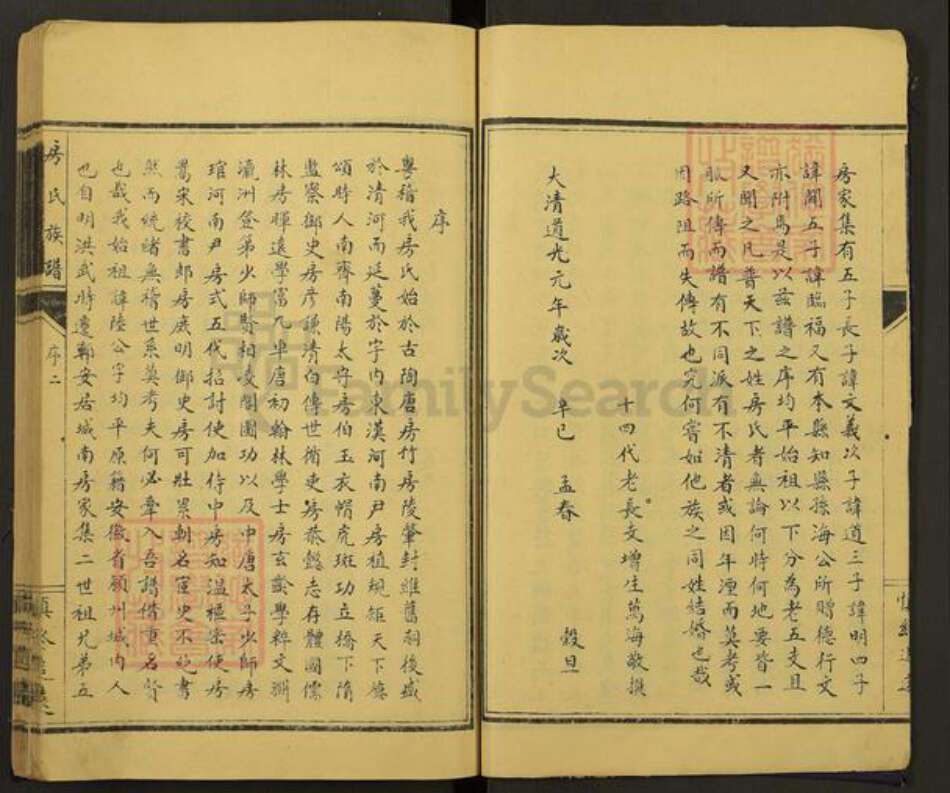 房家集有五子長子諱文義次子諱道三子諱明四子
諱聞五子諱臨福又有本縣知縣孫海公所贈德行文
亦附焉是以兹譜之序均平始祖以下分為老五支且
又聞之凡普天下之姓房氏者無論何時何地要皆一
脈所傳而譜有不同派有不清者或因年湮而莫考或
因路阻而失傳故也究何嘗如他族之同姓結婚也哉
十四代老長支增生萬海敬撰
大清道光元年歲次 辛巳 孟春 穀旦
序
粤稽我房氏始於古陶唐房竹房陵肇封維舊嗣後盛
於清河而延蔓於宇内東漢河南尹房植規矩天下標
頌時人南齊南陽太守房伯玉衣帽虎斑功立橋下隋
監察御史房彦謙清白傳世循吏房恭懿志存體國儒
林房暉遠學富九車唐初翰林學士房玄齡學粹文淵
瀛洲登第少師賢相凌閣圖功以及中唐太子少師房
琯河南尹房式五代招討使加侍中房知温樞密使房
暠宋校書郎房庶明御史房可壯累朝名宦史不絶書
然而統緒無稽世系莫考夫何必牽入吾譜借重名賢
也哉我始祖諱陸公字均平原籍安徽省頴州城内人
也自明洪武時遷鄲安居城南房家集二世祖兄弟五
房氏族譜
序二
FamilySearch